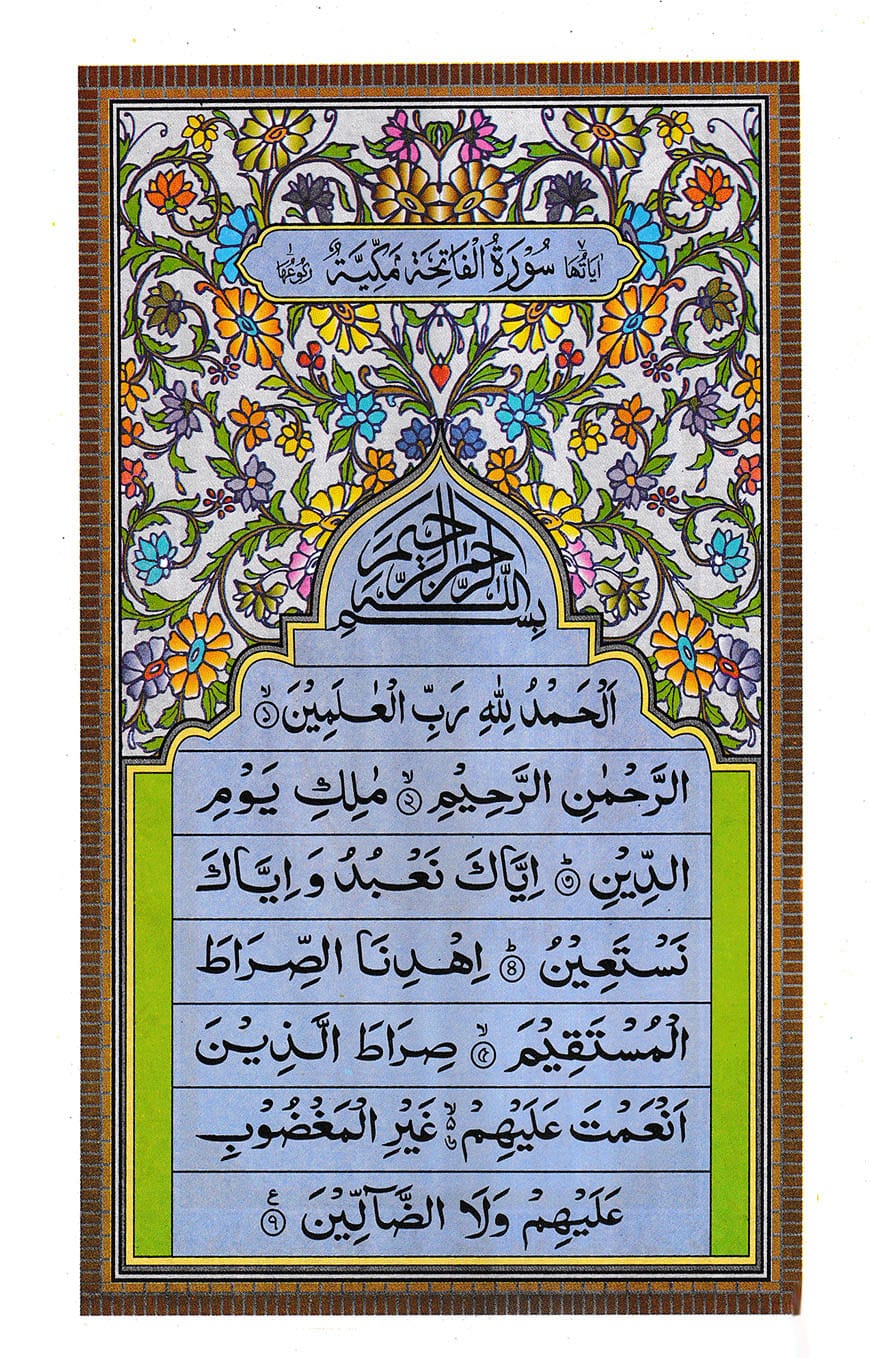 اٰيَاتُهَا ٧ سُوْرَةُ الْفَاتِحَةِ مَكِّيَّةٌ رُكُوْعُهَا ١
بِسْمِ اللّٰهِ الرَّحْمٰنِ الرَّحِيْمِ
اَلْحَمْدُ لِلّٰهِ رَبِّ الْعٰلَمِيْنَ ۙ‏﴿۱﴾
الرَّحْمٰنِ الرَّحِيْمِ ۙ‏﴿۲﴾ مٰلِكِ يَوْمِ
الدِّيْنِ ؕ‏﴿۳﴾ اِيَّاكَ نَعْبُدُ وَ اِيَّاكَ
نَسْتَعِيْنُ ؕ‏﴿۴﴾ اِهْدِنَا الصِّرَاطَ
الْمُسْتَقِيْمَ ۙ‏﴿۵﴾ صِرَاطَ الَّذِيْنَ
اَنْعَمْتَ عَلَيْهِمْ غَيْرِ الْمَغْضُوْبِ
عَلَيْهِمْ وَلَا الضَّآلِّيْنَ